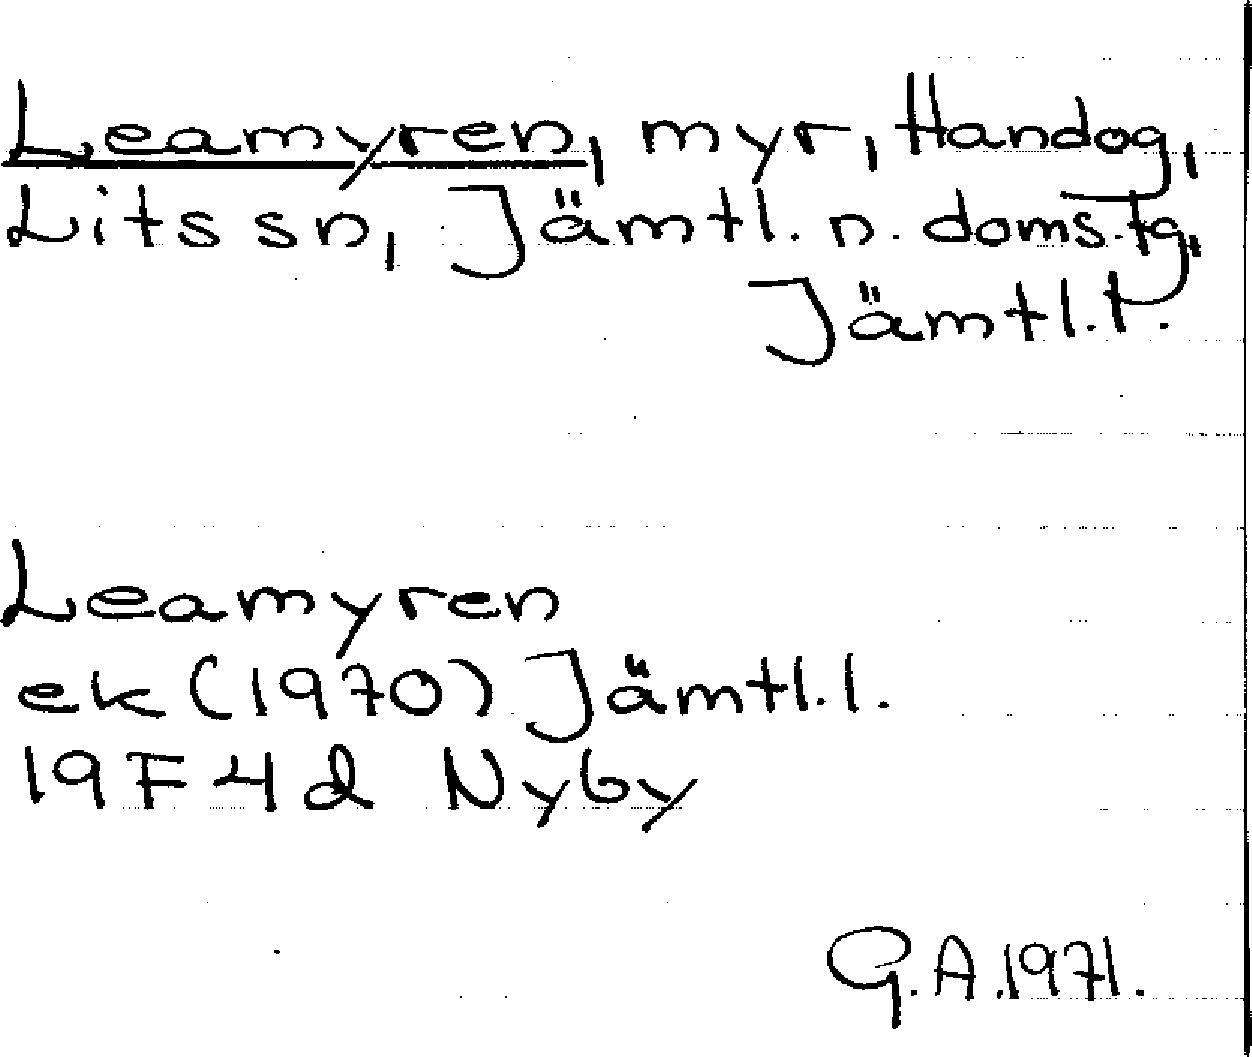 Leamyren, myr, Handog,
Lits sn, Jämtl. n. doms.tg,
Jämtl.l.
Leamyren
ek (1970) Jämtl.l.
19 F 4d Nyby
G.A. 1971.